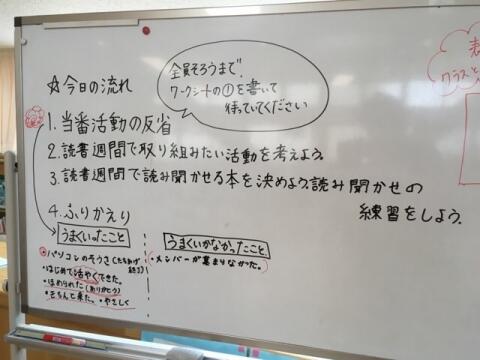 全員そろうまで、
ワークシートの①を書いて
待っていてください
☆今日の流れ
1.当番活動の反省
2.読書週間で取り組みたい活動を考えよう。
3.読書週間で読み聞かせる本を決めよう。読み聞かせの
練習をしよう。
4.ふりかえり
うまくいったこと
・パソコンのそうさ(たちあげ
・はじめて活やくできた。
・ほめられた(ありがとう)
・きちんと来た。・やさしく
うまくいかなかったこと
・メンバーが集まりなかった。
クラスと